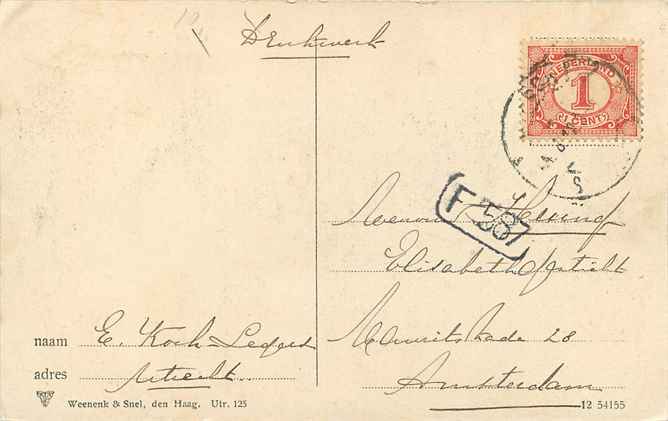 Drukwerk
NEDERLAND
1
1 CENT
F 58
Mevrouw Hering
Elisabeth Gesticht
Mauritskade 28
Amsterdam
naam E. Koch
adres Utrecht
Weenenk & Snel, den Haag. Utr. 125
12 54155